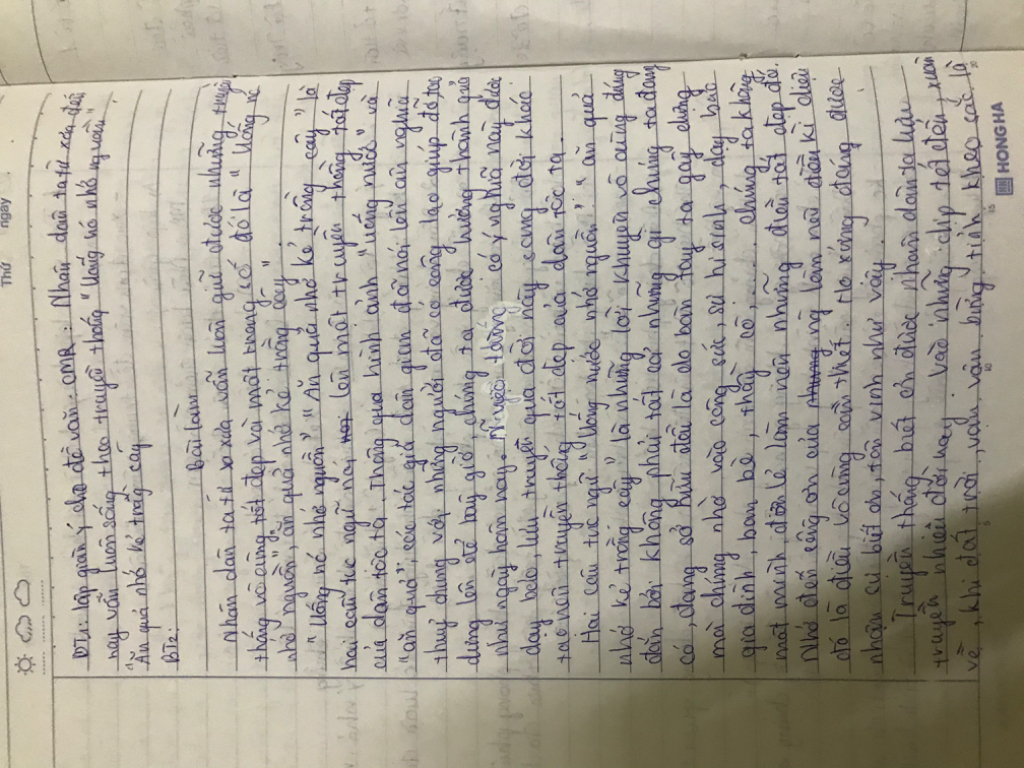 Thứ
ngày
BT1: lập giàn ý cho đề văn: CMR: Nhân dân ta từ xưa đến
nay vẫn luôn sống theo truyền thống "Uống nó nhớ nguồn"
"Ăn quả nhớ kẻ trồng cây
BT2:
Bài làm
Nhân dân ta từ xưa vẫn luôn giữ được những truyền
thống vô cùng tốt đẹp và một trong số đó là "Uống nó
nhớ nguồn", ăn quả nhớ kẻ trồng cây".
"Uống nó nhớ nguồn" "Ăn quả nhớ kẻ trồng cây" là
hai câu tục ngữ nói lên một truyền thống tốt đẹp
của dân tộc ta. Thông qua hình ảnh "uống nước" và
"ăn quả", các tác giả dân gian đã nói lên ân nghĩa
thuỷ chung với những người đã có công lao giúp đỡ,
dựng lên để bây giờ, chúng ta được hưởng thành quả
như ngày hôm nay. Nguyên tắc có ý nghĩa này được
dạy bảo, lưu truyền qua đời này sang đời khác
tạo nên truyền thống tốt đẹp của dân tộc ta.
Hai câu tục ngữ "Uống nước nhớ nguồn", "ăn quả
nhớ kẻ trồng cây" là những lời khuyên vô cùng đúng
đắn bởi không phải tất cả những gì chúng ta đang
có, đang sở hữu đều là do bàn tay ta gây dựng
mà chúng nhờ vào công sức, sự hi sinh, dạy bảo
gia đình, bạn bè, thầy cô,... chúng ta không
một mình đơn lẻ làm nên những điều tốt đẹp đó.
Nhớ đến công ơn của những làm nên điều kì diệu
đó là điều vô cùng cần thiết. Họ xứng đáng được
nhận sự biết ơn, tôn vinh như vậy.
Truyền thống biết ơn được nhân dân ta lưu
truyền nhiều đời nay. Vào những dịp tết đến, xuân
về, khi đất trời, vạn vật bừng tỉnh khẽo cất là
HONG HA